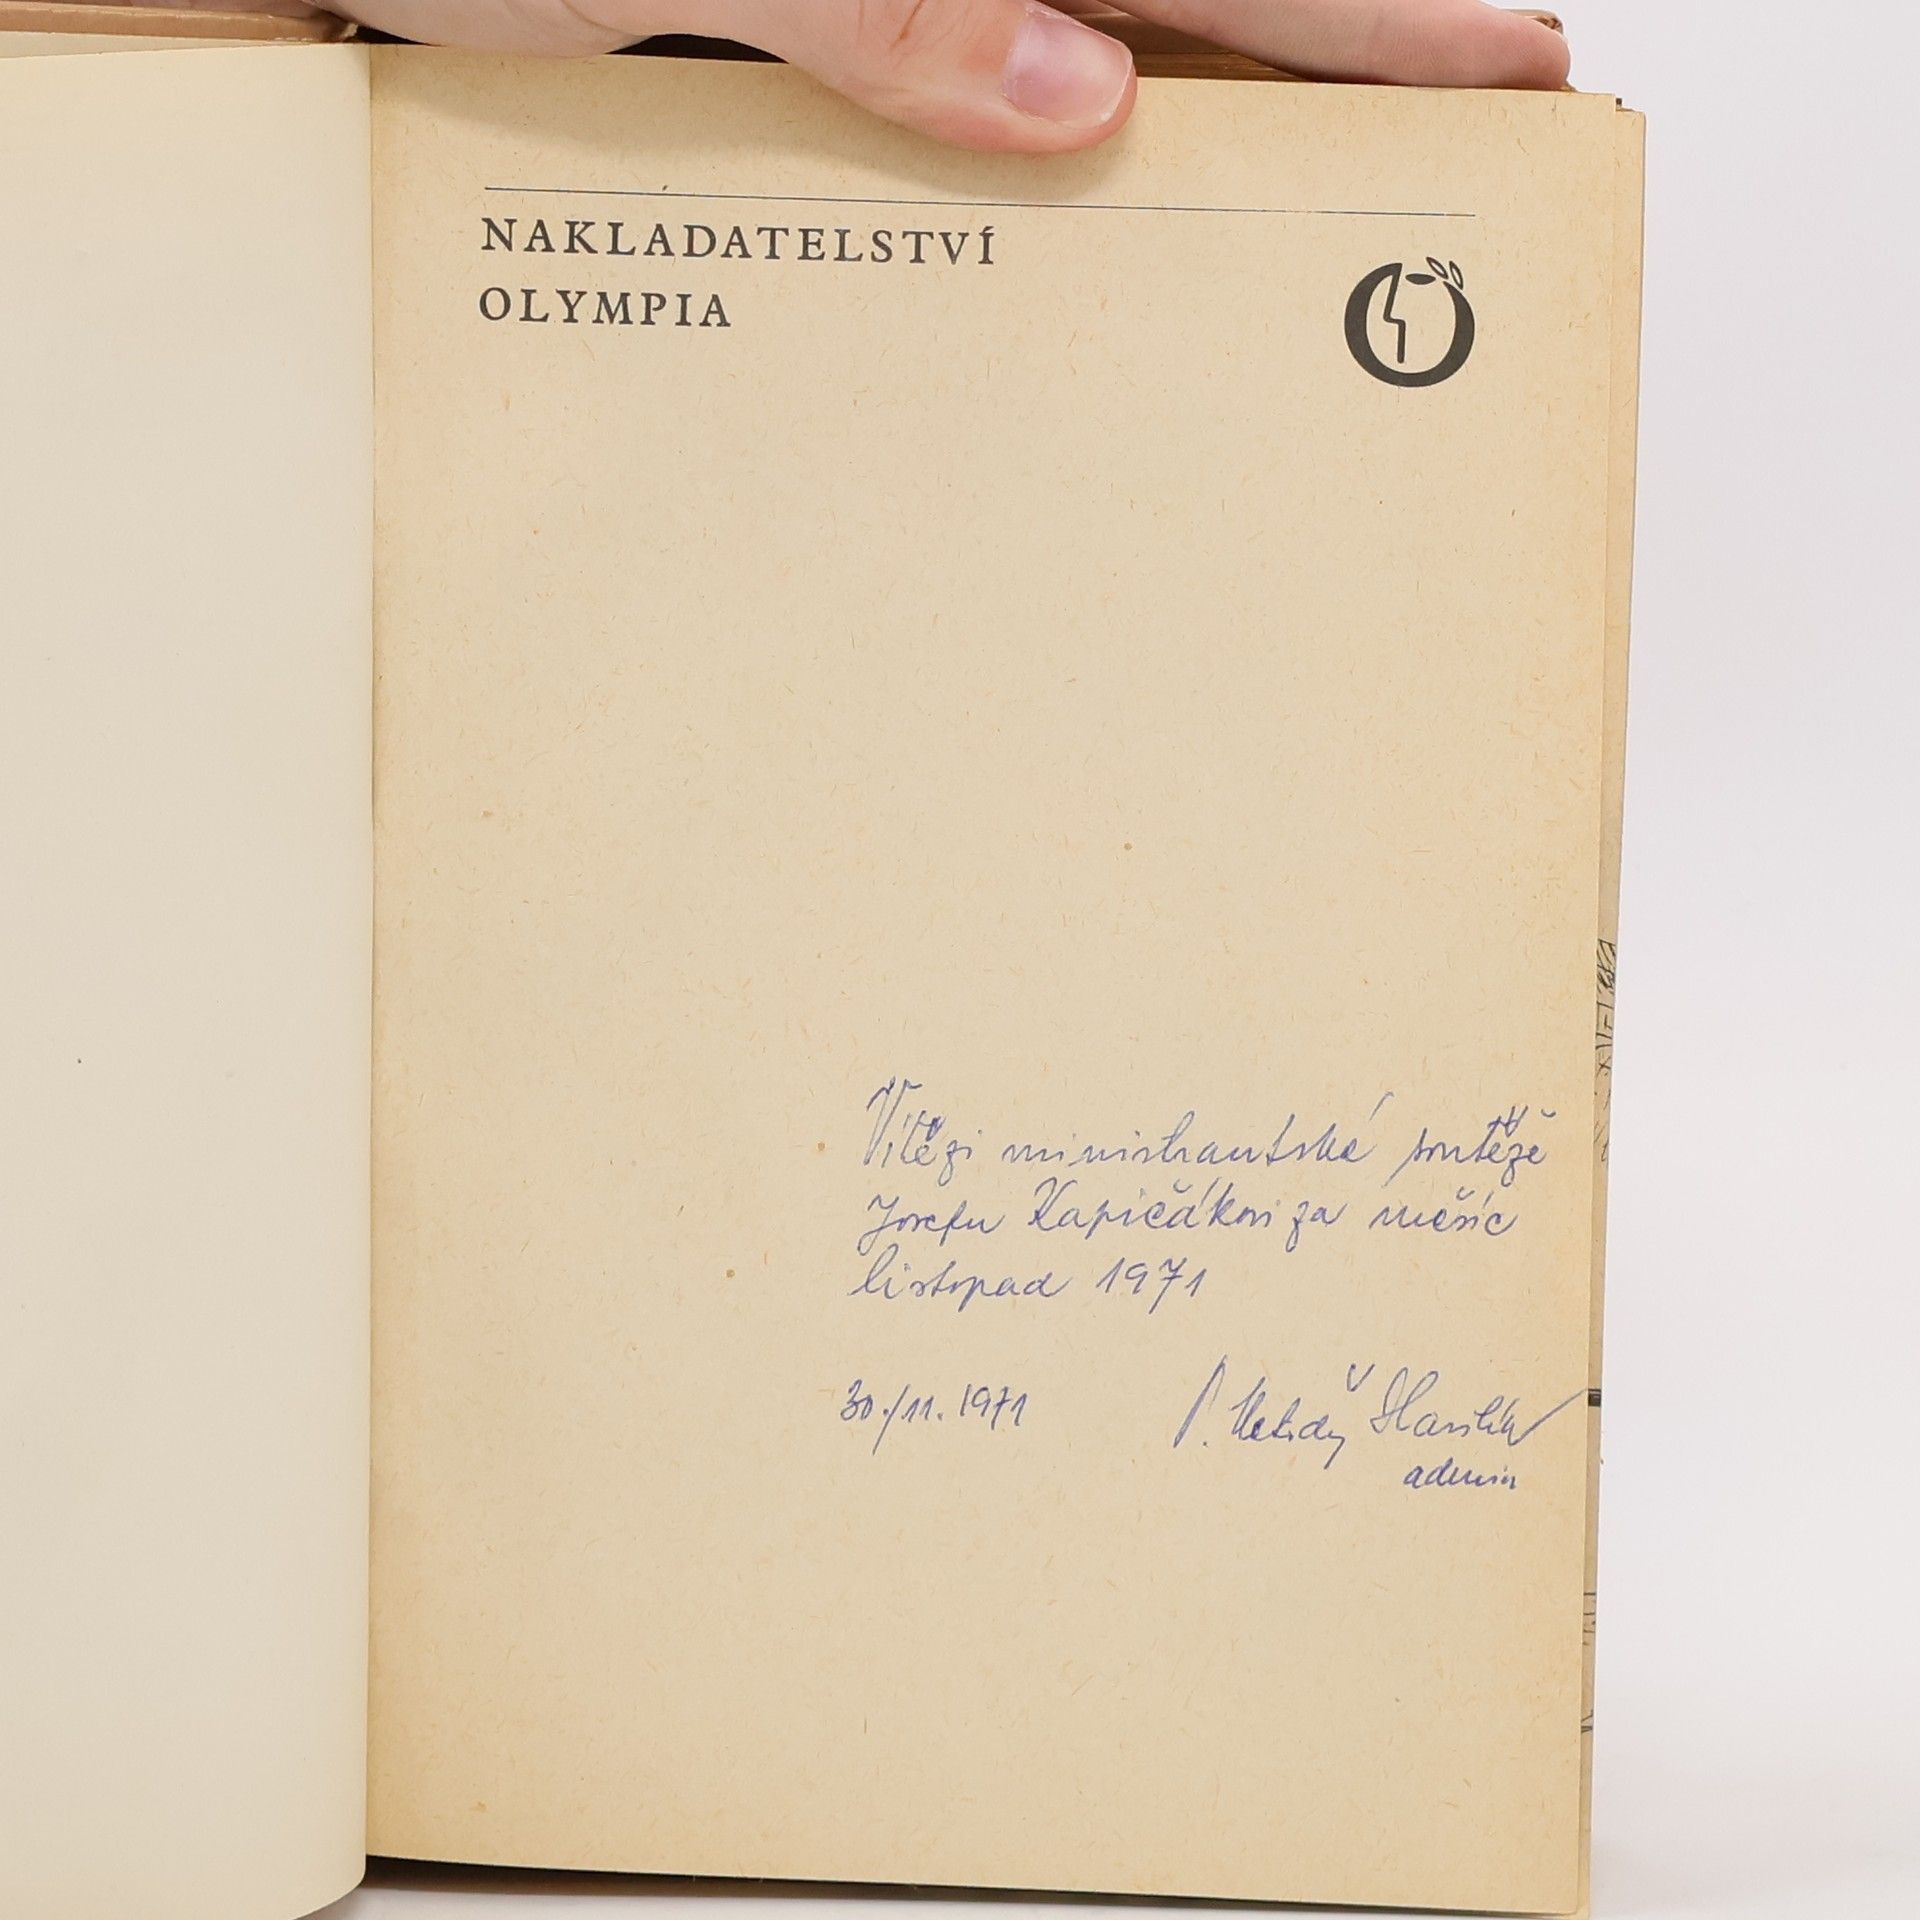 NAKLADATELSTVÍ
OLYMPIA
Vítězi ministrantské soutěže
Josefu Kapičákovi za měsíc
listopad 1971
30./11. 1971
P. Metoděj
admin